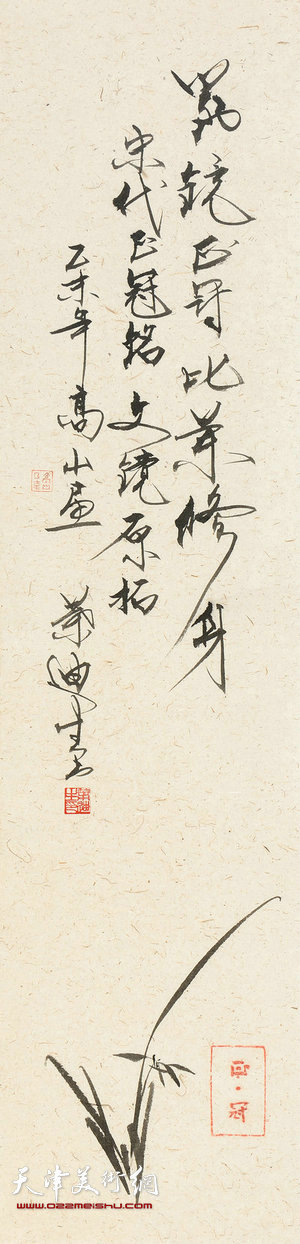 览镜正冠比兰修身
宋代正冠铭文镜原拓
乙未年高山画
荣迪书
正·冠
天津美术网
www.022meishu.com